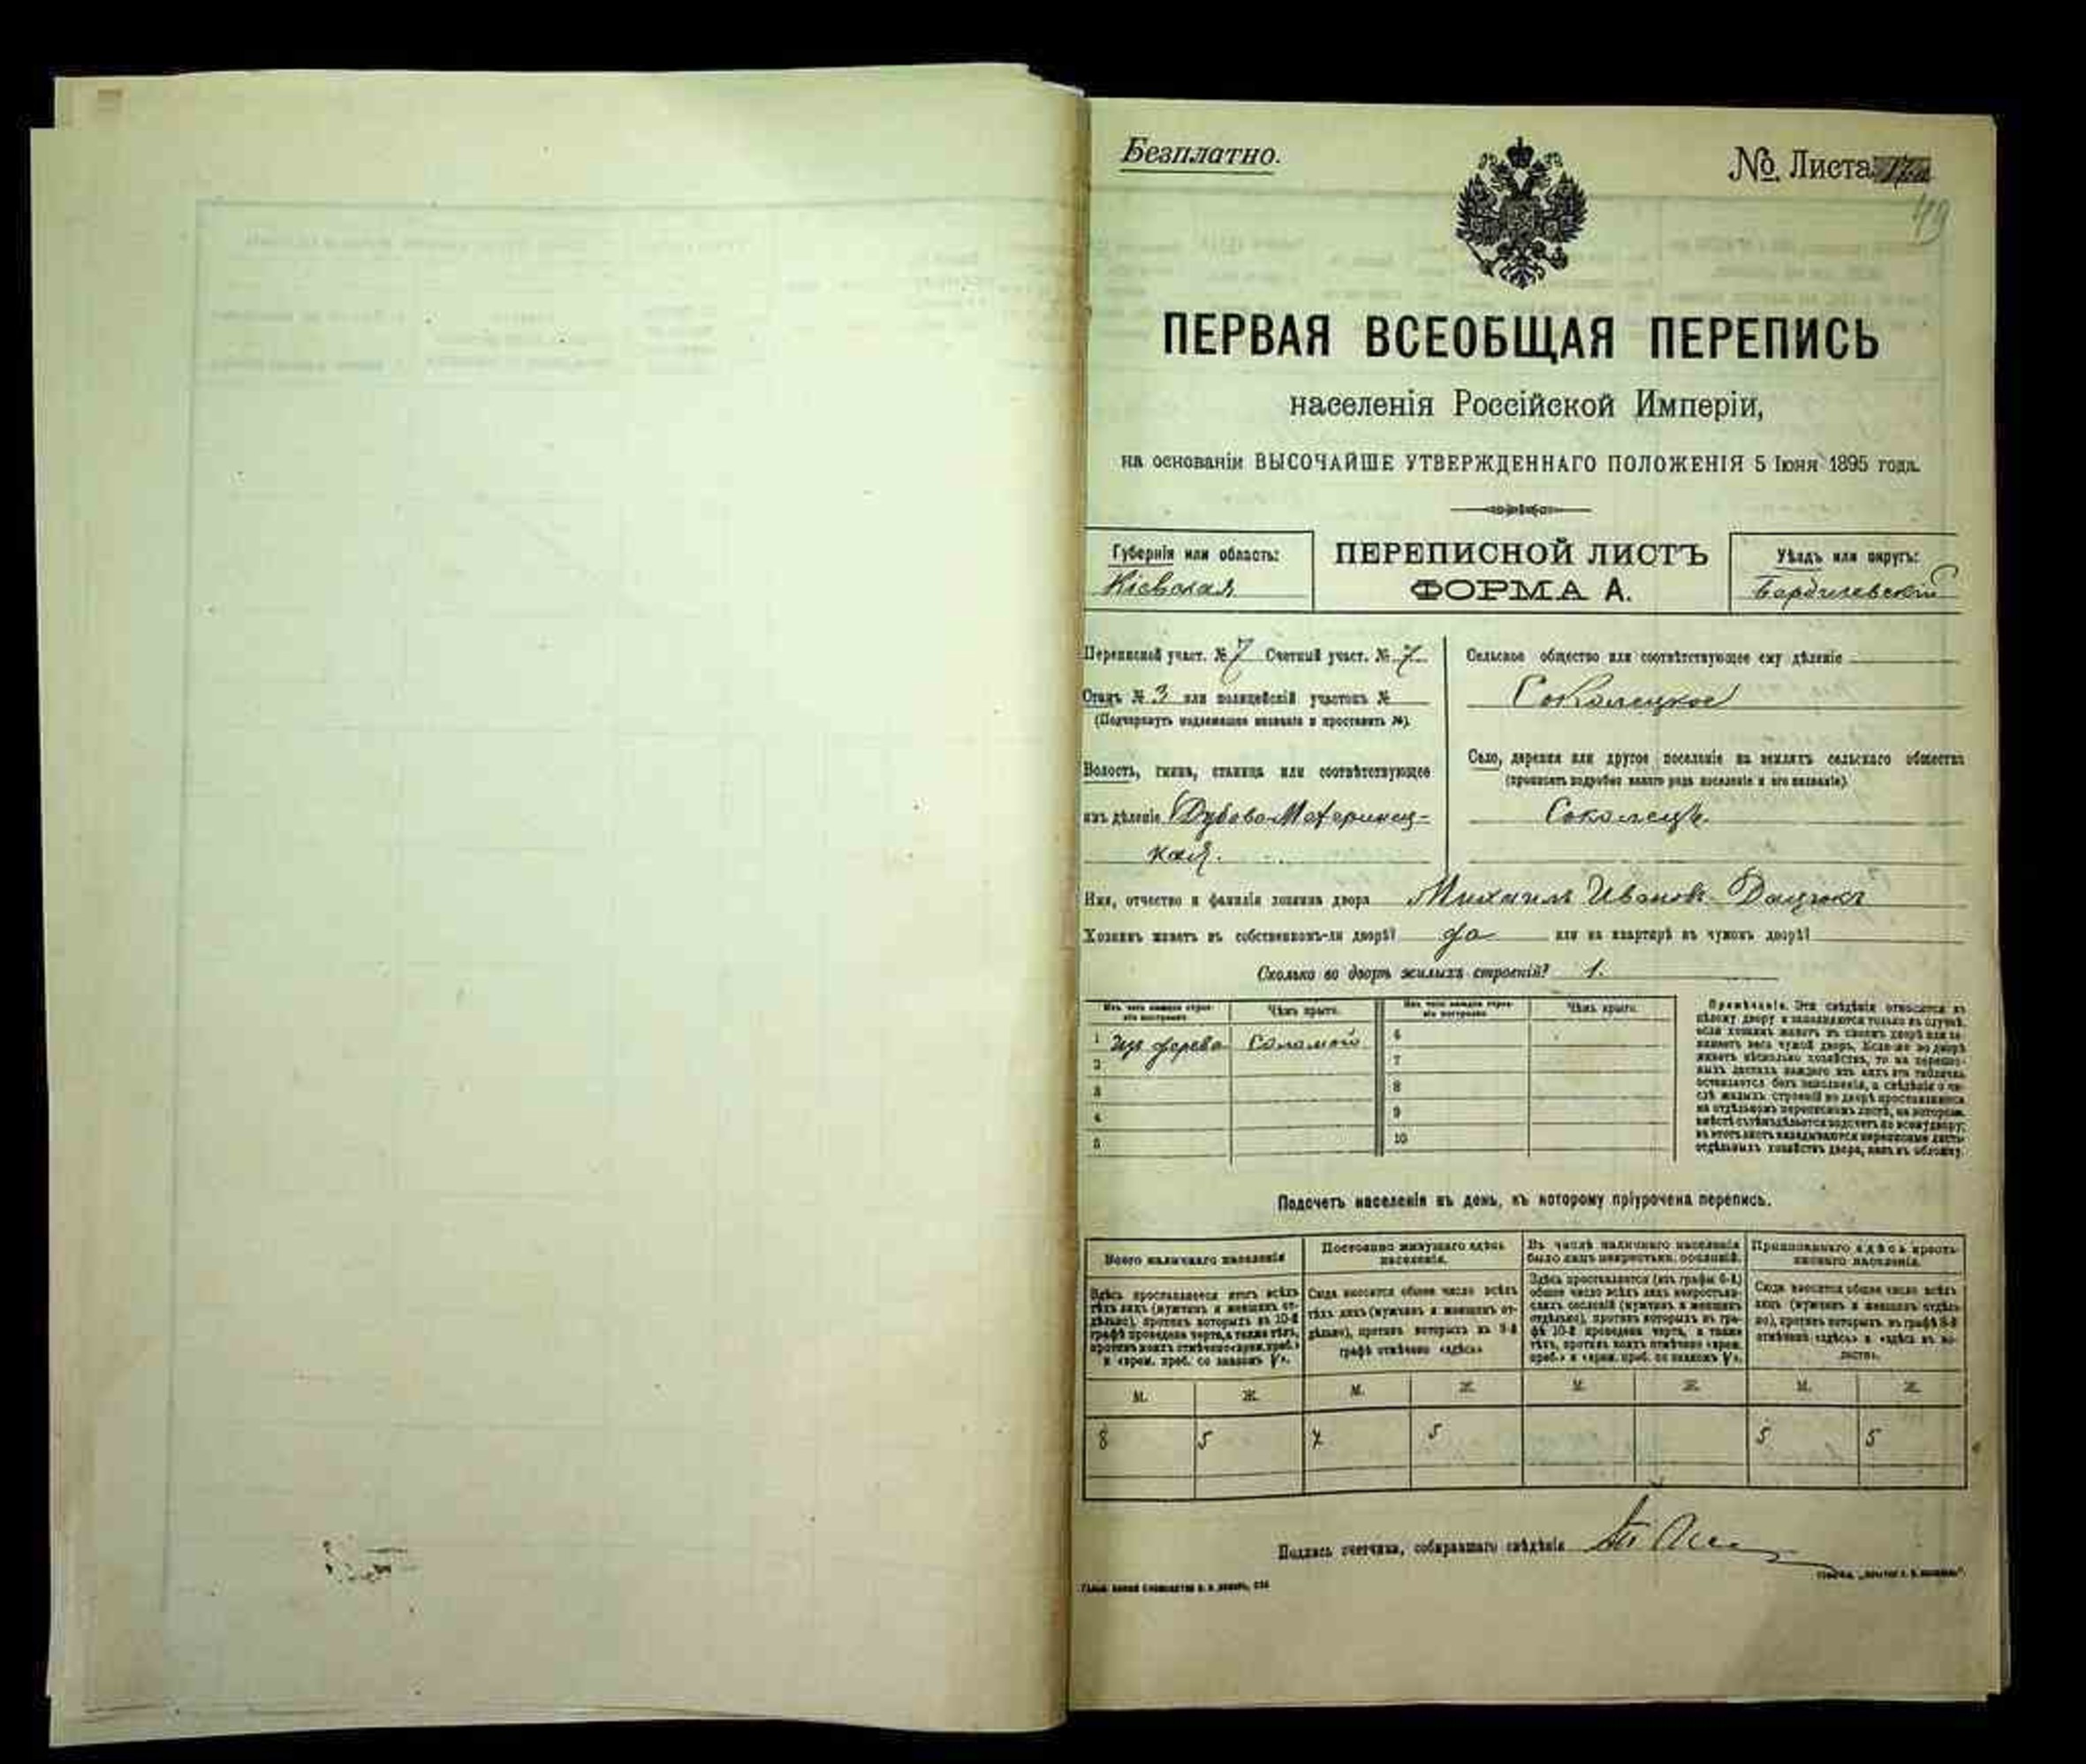 Безплатно.
№ Листа
49
ПЕРВАЯ ВСЕОБЩАЯ ПЕРЕПИСЬ
населенія Россійской Имперіи,
на основаніи ВЫСОЧАЙШЕ УТВЕРЖДЕННАГО ПОЛОЖЕНІЯ 5 Іюня 1895 года.
Губернія или область:
Кіевская
ПЕРЕПИСНОЙ ЛИСТЪ
ФОРМА А.
Уѣздъ или округъ:
Бердичевскій
Переписной участ. № 7 Счетный участ. № 7
Станъ № 3 или полицейскій участокъ №
(Подчеркнуть надлежащее названіе и проставить №).
Волость, гмина, станица или соотвѣтствующее
имъ дѣленіе Дубово-Махаринец-
кая.
Сельское общество или соотвѣтствующее ему дѣленіе
Соколецкое
Село, деревня или другое поселеніе на земляхъ сельскаго общества
(прописать подробно какого рода поселеніе и его названіе).
Соколецъ
Имя, отчество и фамилія хозяина двора Михаилъ Ивановъ Дацюкъ
Хозяинъ живетъ въ собственномъ-ли дворѣ? да или на квартирѣ въ чужомъ дворѣ?
Сколько во дворѣ жилыхъ строеній? 1.
Изъ чего каждое строеніе построено. Чѣмъ крыто. Изъ чего каждое строеніе построено. Чѣмъ крыто.
1 Изъ дерева Соломой 6
2 7
3 8
4 9
5 10
Примѣчаніе. Эти свѣдѣнія относятся къ
цѣлому двору и заполняются только въ случаѣ,
если хозяинъ живетъ въ своемъ дворѣ или за-
нимаетъ весь чужой дворъ. Если-же во дворѣ
живетъ нѣсколько хозяйствъ, то на перепис-
ныхъ листахъ каждаго изъ нихъ эта табличка
оставляется безъ заполненія, а свѣдѣнія о чи-
слѣ жилыхъ строеній во дворѣ проставляются
на отдѣльномъ переписномъ листѣ, на которомъ
вмѣстѣ съ тѣмъ дѣлается подсчетъ по всему двору;
въ этотъ листъ вкладываются переписные листы
отдѣльныхъ хозяйствъ двора, какъ въ обложку.
Подсчетъ населенія въ день, къ которому пріурочена перепись.
Всего наличнаго населенія
Здѣсь проставляется итогъ всѣхъ
тѣхъ лицъ (мужчинъ и женщинъ от-
дѣльно), противъ которыхъ въ 10-й
графѣ проведена черта, а также тѣхъ,
противъ коихъ отмѣчено «врем. преб.»
и «врем. преб. со знакомъ V».
Постоянно живущаго здѣсь
населенія.
Сюда вносится общее число всѣхъ
тѣхъ лицъ (мужчинъ и женщинъ от-
дѣльно), противъ которыхъ въ 9-й
графѣ отмѣчено «здѣсь»
Въ числѣ наличнаго населенія
было лицъ некрестьянск. сословій.
Здѣсь проставляется (изъ графы 6-й)
общее число всѣхъ лицъ некрестьян-
скихъ сословій (мужчинъ и женщинъ
отдѣльно), противъ которыхъ въ гра-
фѣ 10-й проведена черта, а также
тѣхъ, противъ коихъ отмѣчено «врем.
преб.» и «врем. преб. со знакомъ V».
Приписаннаго здѣсь кресть-
янскаго населенія.
Сюда вносится общее число всѣхъ
лицъ (мужчинъ и женщинъ отдѣль-
но), противъ которыхъ въ графѣ 8-й
отмѣчено «здѣсь» и «здѣсь въ во-
лости».
М. Ж. М. Ж. М. Ж. М. Ж.
8 5 7 5 5 5
Подпись счетчика, собиравшаго свѣдѣнія